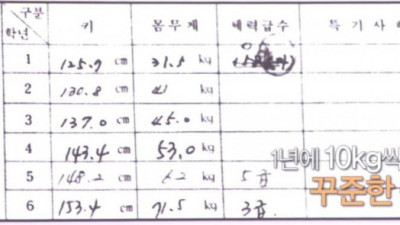 구분 키 몸무게 체력급수 특기사
학년
1 125.9 cm 31.5 kg
2 130.8 cm 41 kg
3 137.0 cm 45.0 kg
4 143.4 cm 53.0 kg
1년에 10kg씩
5 148.2 cm 62 kg 5급
꾸준한
6 153.4 cm 71.5 kg 3급